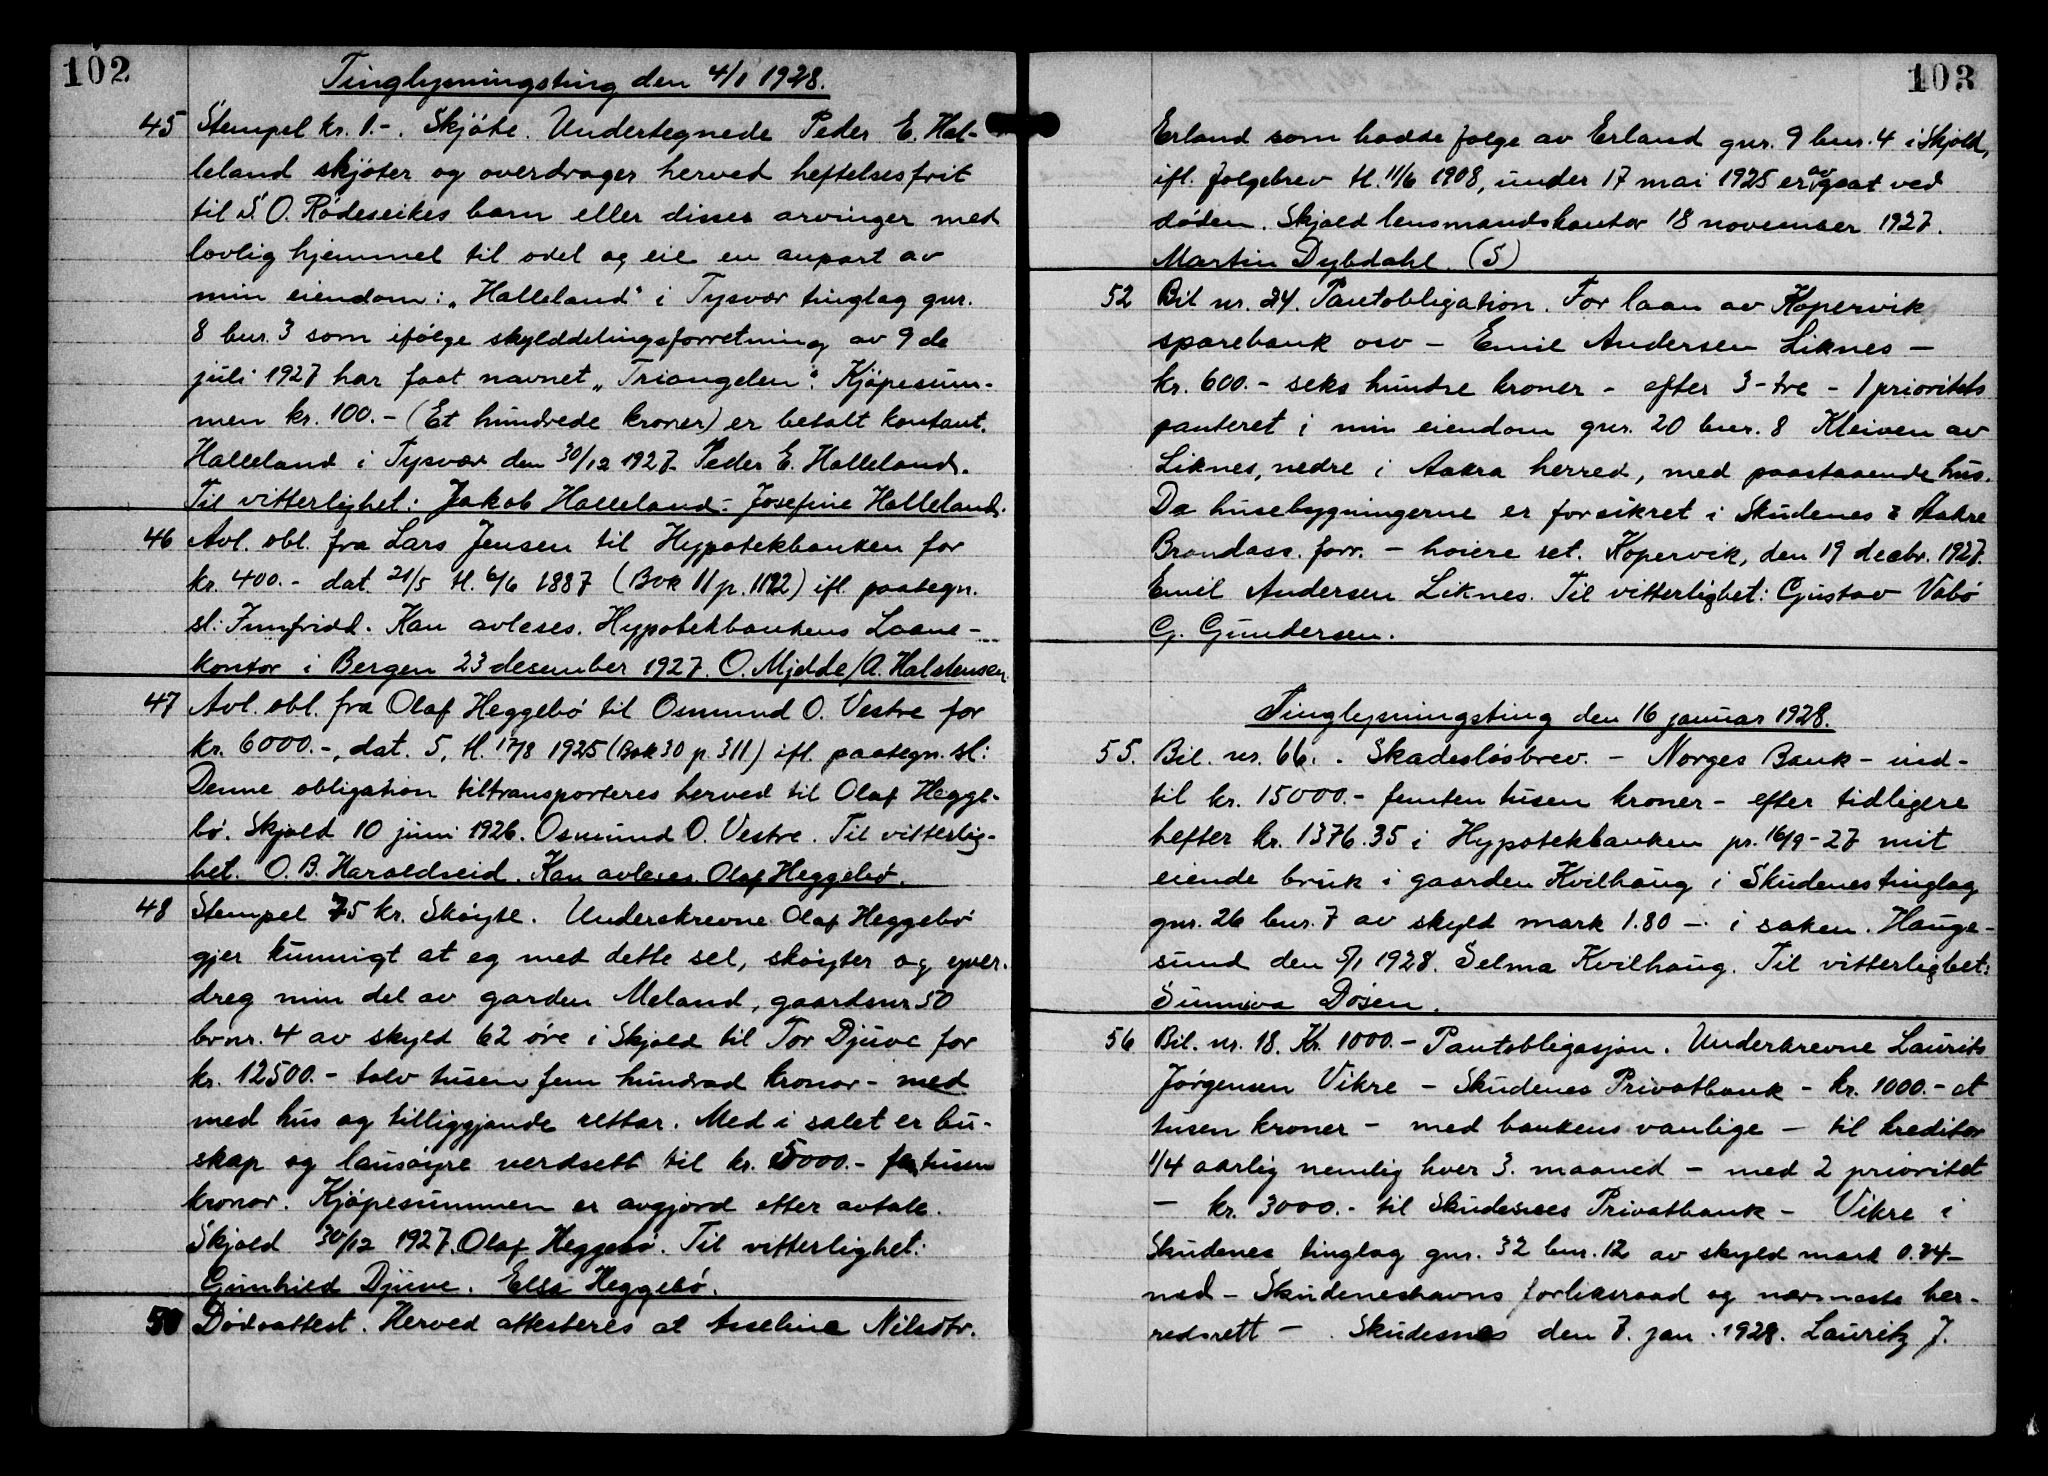 102
Tinglysningsting den 4/1 1928.
45 Stempel kr. 1.-. Skjöte. Undertegnede Peder E. Hal-
leland skjöter og overdrager herved heftelsesfrit
til S. O. Rödeseikes barn eller disses arvinger med
lovlig hjemmel til odel og eie en anpart av
min eiendom: „Halleland" i Tysvær tinglag gnr.
8 bnr. 3 som ifölge skylddelingsforretning av 9 de
juli 1927 har faat navnet „Triangelen". Kjöpesum-
men kr. 100.- (Et hundrede kroner) er betalt kontant.
Halleland i Tysvær den 30/12 1927. Peder E. Halleland.
Til vitterlighet: Jakob Halleland - Josefine Halleland.
46 Avl. obl. fra Lars Jensen til Hypotekbanken for
kr. 400.- dat. 21/5 tl. 6/6 1887 (Bok 11 p. 1122) ifl. paategn.
sl: Innfridd. Kan avleses. Hypotekbankens Laane-
kontor i Bergen 23 desember 1927. O. Mjelde/A. Halstensen
47 Avl. obl. fra Olaf Heggebö til Osmund O. Vestre for
kr. 6000.-, dat. 5, tl. 17/8 1925 (Bok 30 p 311) ifl. paategn. sl:
Denne obligation tiltransporteres herved til Olaf Hegge-
bö. Skjold 10 juni 1926. Osmund O. Vestre. Til vitterlig-
het. O. B. Haraldseid. Kan avleses Olaf Heggebø.
48 Stempel 75 kr. Skøyte. Underskrevne Olaf Heggebø
gjer kunnigt at eg med dette sel, skøyter og yver-
dreg min del av garden Meland, gaardsnr 50
brnr. 4 av skyld 62 öre i Skjold til Tor Djuve for
kr. 12500.- tolv tusen fem hundrad kronor - med
med hus og tilliggjande rettar. Med i salet er bu-
skap og lausöyre verdsett til kr. 5000.- fem tusen
kronor. Kjöpesummen er avgjord etter avtale.
Skjold 30/12 1927. Olaf Heggebö. Til vitterlighet:
Gunhild Djuve. Elsa Heggebö.
50 Dødsattest. Herved attesteres at Asseline Nilsdtr.
103
Erland som hadde folge av Erland gnr. 9 bnr. 4 i Skjold,
ifl. folgebrev tl. 11/6 1908, under 17 mai 1925 er avgaat ved
døden. Skjold lensmandskontor 18 november 1927.
Martin Dybdahl. (S)
52 Bil nr. 24. Pantobligation. For laan av Kopervik
sparebank osv - Emil Andersen Liknes -
kr. 600.- seks hundre kroner - efter 3 - tre - 1 prioritets
panteret i min eiendom gnr. 20 bnr. 8 Kleiven av
Liknes, nedre i Aakra herred, med paastaaende hus.
Da husebygningerne er forsikret i Skudenes & Aakre
Brandass. forr. - høiere ret. Kopervik, den 19 decbr. 1927.
Emil Andersen Liknes. Til vitterlighet: Gustav Vabö
G. Gundersen.
Tinglysningsting den 16 januar 1928.
55. Bil. nr. 66. . Skadesløsbrev. - Norges Bank - ind-
til kr. 15000.- femten tusen kroner - efter tidligere
hefter kr. 1376.35 i Hypotekbanken pr. 16/9-27 mit
eiende bruk i gaarden Kvilhaug i Skudenes tinglag
gnr. 26 bnr. 7 av skyld mark 1.80 -. i saken. Hauge-
sund den 5/1 1928. Selma Kvilhaug. Til vitterlighet:
Sunniva Døsen.
56 Bil. nr. 18. Kr. 1000.- Pantobligasjon. Underkrevne Laurits
Jørgensen Vikre - Skudenes Privatbank - kr. 1000.- et
tusen kroner - med bankens vanlige - til kreditor
1/4 aarlig nemlig hver 3. maaned - med 2 prioritet
- kr. 3000.- til Skudesnes Privatbank - Vikre i
Skudenes tinglag gnr. 32 bnr. 12 av skyld mark 0.24-
ned - Skudeneshavns forliksraad og nærmeste her-
redsrett - . Skudesnes den 7. jan. 1928. Lauritz J.